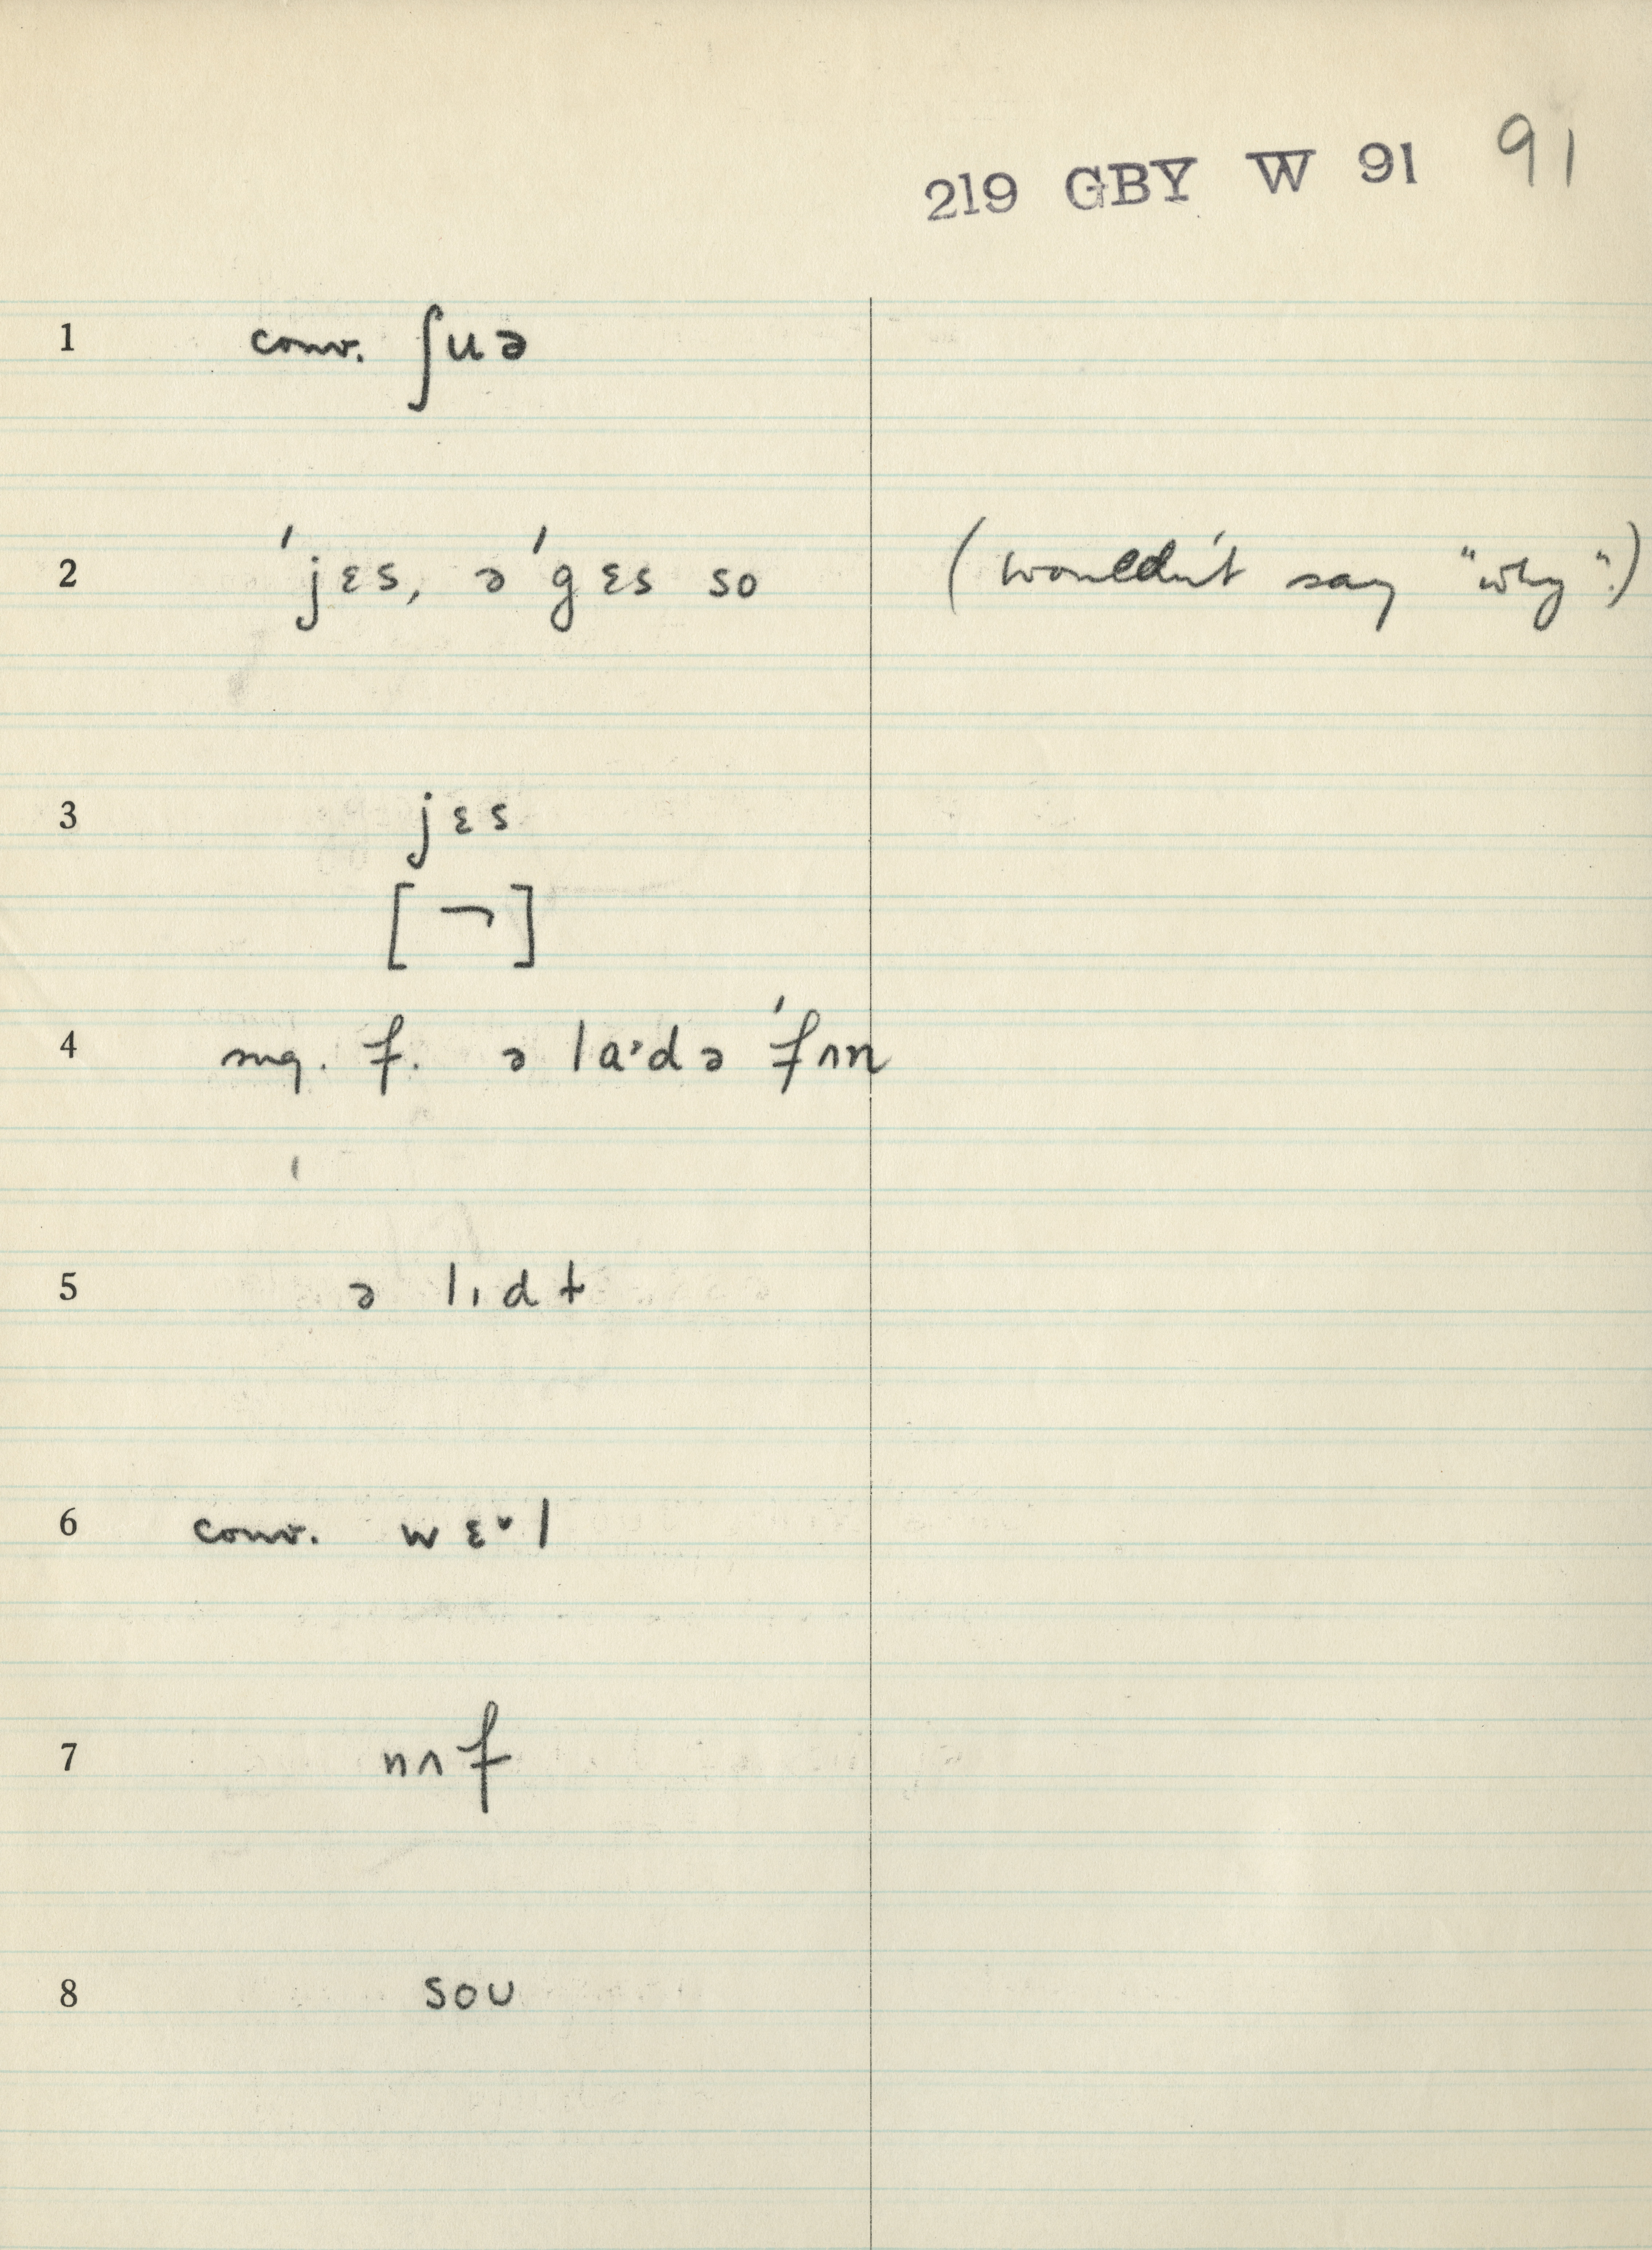 219 GBY W 91 91
1 conv. ʃuə
2 ˈjɛs, əˈgɛs so (wouldn't say "why".)
3 jɛs
[¬]
4 sug. f. ə laˑdə ˈfʌn
5 ə lɪdɫ
6 conv. wɛˑl
7 nʌf
8 soʊ